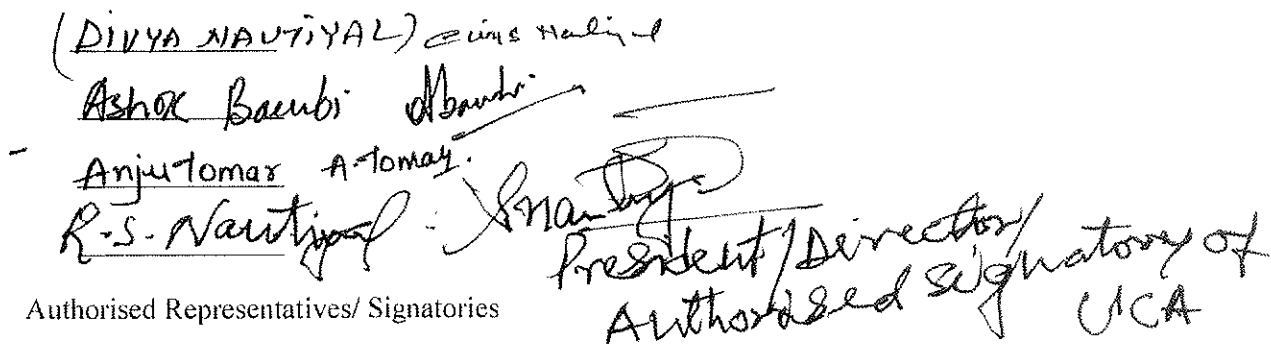 (DIVYA NAUTIYAL)
Ashok Baubi
Anju Tomar A-Tomar.
R.S. Nautiyal
President/Director/
Authorised signatory of
UCA
Authorised Representatives/ Signatories